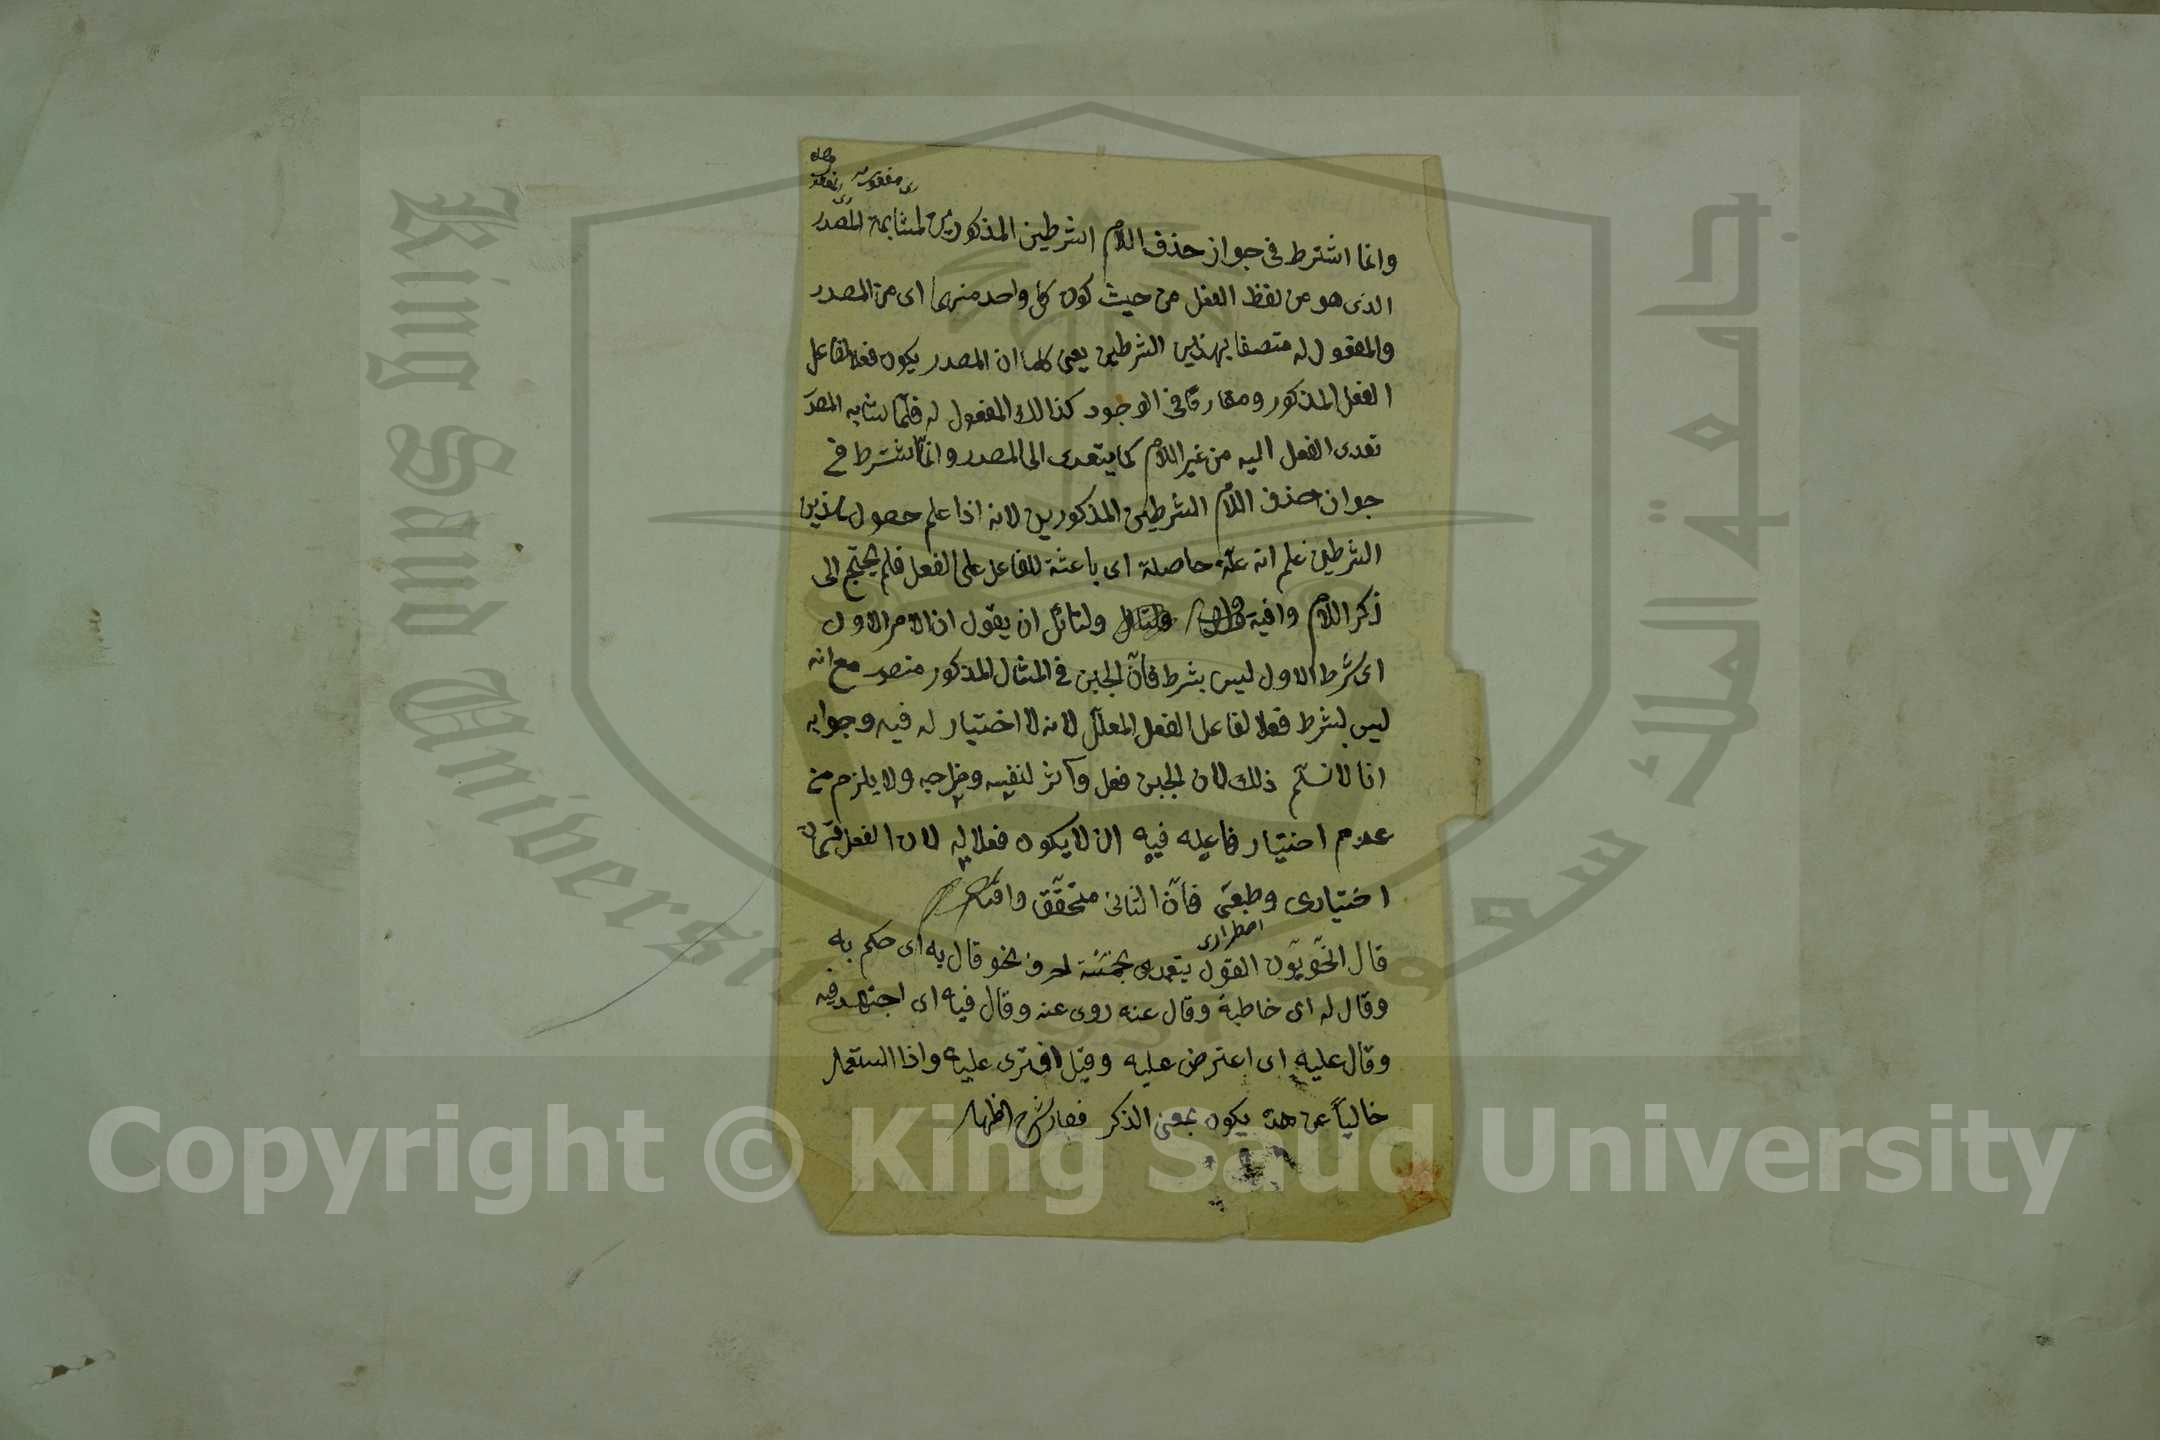 وانما اشترط فى جواز حذف اللام الشرطين المذكورين لمشابهة المصدر
الذى هو من لفظ الفعل من حيث كون كل واحد منهما اى من المصدر
والمفعول له متصفا بهذين الشرطين يعنى كما ان المصدر يكون فعلا لفاعل
الفعل المذكور ومقارنا فى الوجود كذالك المفعول له فلما شابه المصدر
تعدى الفعل اليه من غير اللام كما يتعدى الى المصدر وانما اشترط فى
جواز حذف اللام الشرطين المذكورين لانه اذا علم حصول هذين
الشرطين علم انه علة حاصلة اى باعثة للفاعل على الفعل فلم يحتج الى
ذكر اللام وافية ولقائل ان يقول ان الامر الاول
اى شرط الاول ليس بشرط فان الجبن فى المثال المذكور منصوب مع انه
ليس بشرط فعلا لفاعل الفعل المعلل لانه لا اختيار له فيه وجوابه
انا لا نسلم ذلك لان الجبن فعل لنفسه ولا يلزم من
عدم اختيار فاعله فيه ان لا يكون فعلا له لان الفعل قسمان
اختيارى وطبعى فان الثانى متحقق
اضطرارى
قال النحويون القول يتعدى بخمسة احرف نحو قال به اى حكم به
وقال له اى خاطبه وقال عنه روى عنه وقال فيه اى اجتهد فيه
وقال عليه اى اعترض عليه وقيل افترى عليه واذا استعمل
خاليا عن هذه يكون بمعنى الذكر شرح اظهار
King Saud University
جامعة الملك سعود
1957
Copyright © King Saud University